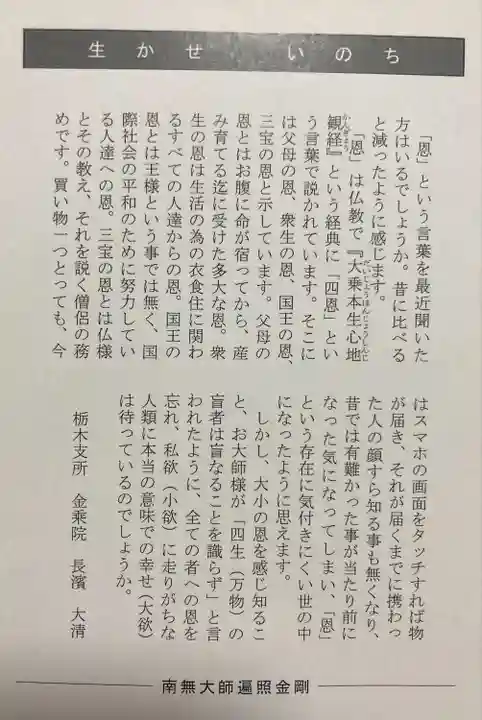 生かせ いのち
「恩」という言葉を最近聞いた
方はいるでしょうか。昔に比べる
と減ったように感じます。
「恩」は仏教で『大乗本生心地
観経』という経典に「四恩」とい
う言葉で説かれています。そこに
は父母の恩、衆生の恩、国王の恩、
三宝の恩と示しています。父母の
恩とはお腹に命が宿ってから、産
み育てる迄に受けた多大な恩。衆
生の恩は生活の為の衣食住に関わ
るすべての人達からの恩。国王の
恩とは王様という事では無く、国
際社会の平和のために努力してい
る人達への恩。三宝の恩とは仏様
とその教え、それを説く僧侶の務
めです。買い物一つとっても、今
はスマホの画面をタッチすれば物
が届き、それが届くまでに携わっ
た人の顔すら知る事も無くなり、
昔では有難かった事が当たり前に
なった気になってしまい、「恩」
という存在に気付きにくい世の中
になったように思えます。
しかし、大小の恩を感じ知るこ
と、お大師様が「四生（万物）の
盲者は盲なることを識らず」と言
われたように、全ての者への恩を
忘れ、私欲（小欲）に走りがちな
人類に本当の意味での幸せ（大欲）
は待っているのでしょうか。
栃木支所 金乗院 長濱 大清
南無大師遍照金剛